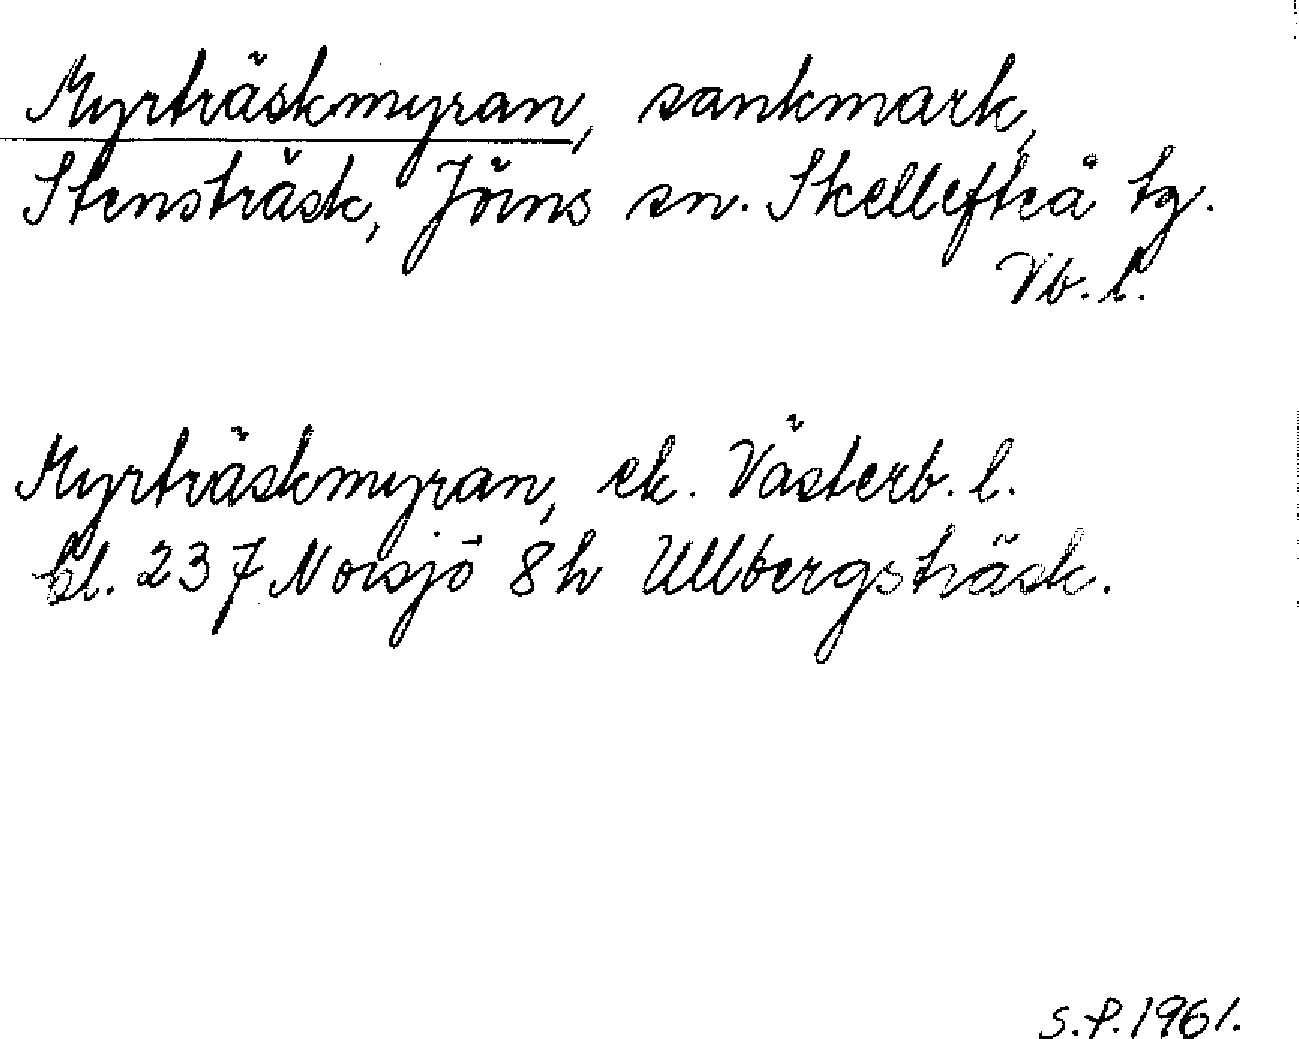 Myrträskmyran, sankmark,
Stensträsk, Jörns sn. Skellefteå tg.
Vb. l.
Myrträskmyran, ek. Västerb. l.
bl. 237 Norsjö 8h Ullbergsträsk.
S.P. 1961.